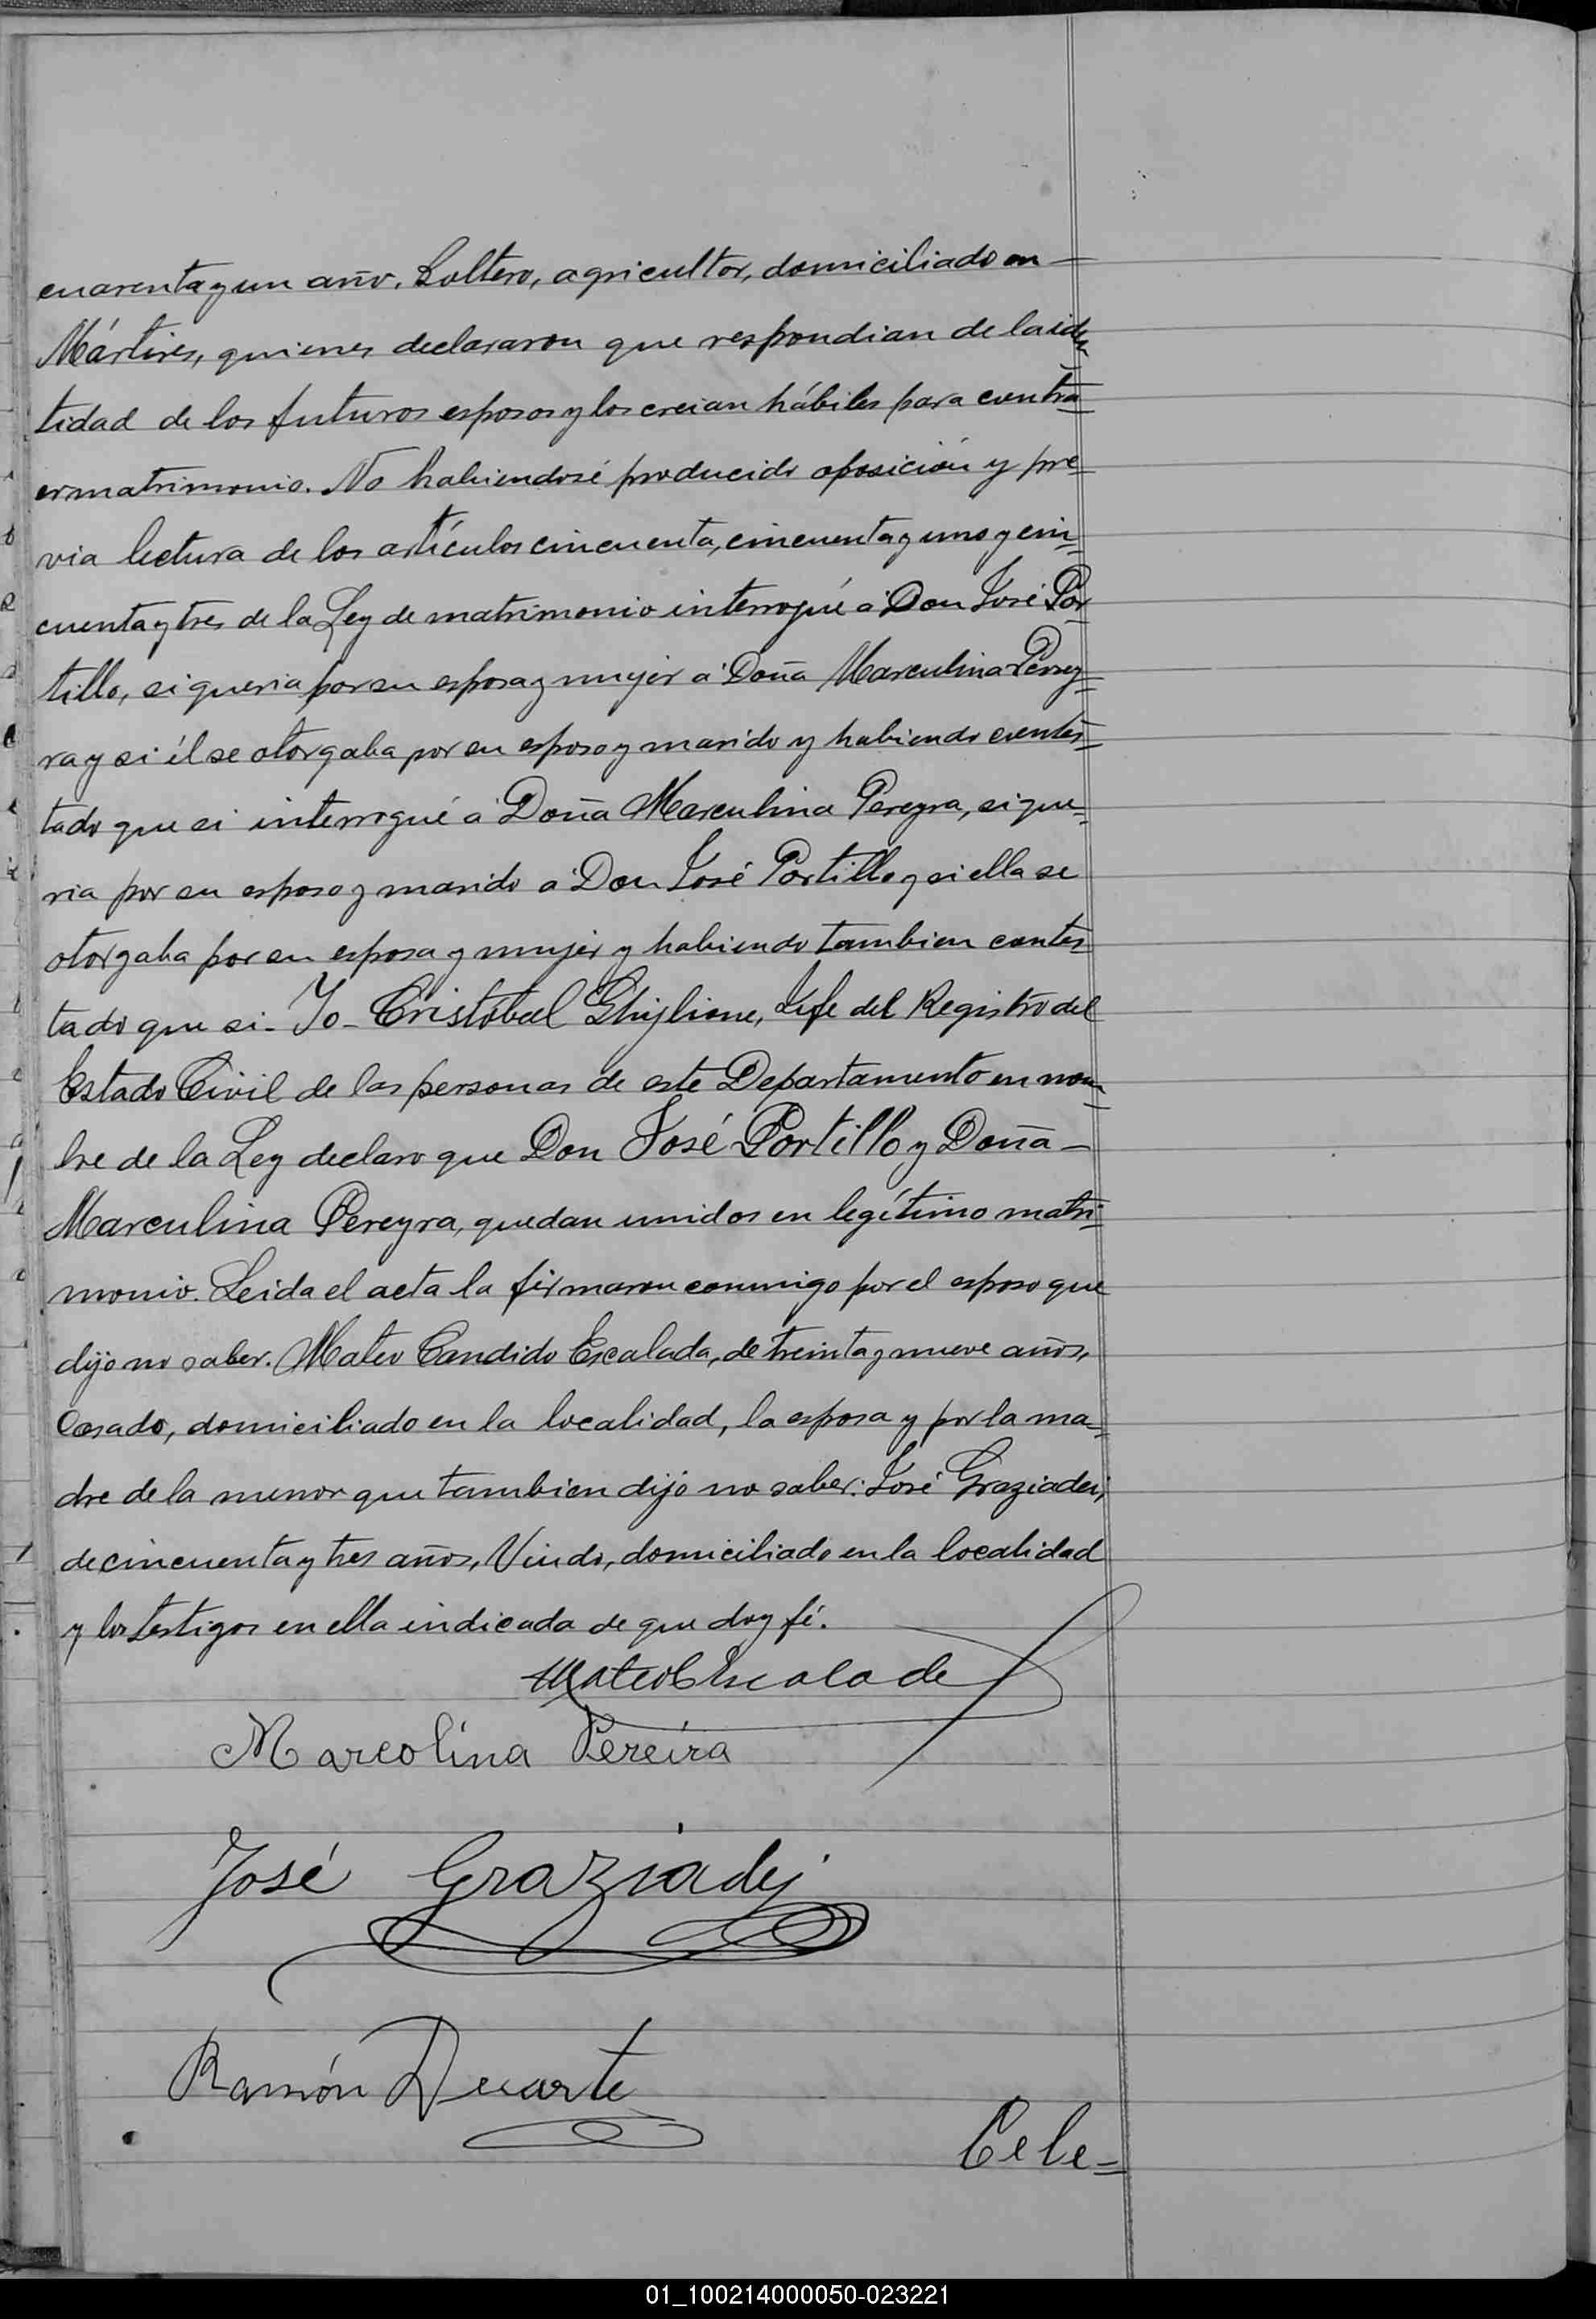 cuarenta y un año. Soltero, agricultor, domiciliado en —
Mártires, quienes declararon que respondian de la iden
tidad de los futuros esposos y los creian hábiles para contra-
er matrimonio. No habiendosé producido oposición y pre-
via lectura de los artículos cincuenta, cincuenta y uno y cin=
cuenta y tres de la Ley de matrimonio interrogué a Don José Por
tillo, si queria por su esposa y mujer a Doña Marculina Perey=
ra y si él se otorgaba por su esposo y marido y habiendo contes=
tado que si interrogué a Doña Marculina Pereyra, si que=
ria por su esposo y marido a Don José Portillo y si ella se
otorgaba por su esposa y mujer y habiendo tambien contes-
tado que si- Yo- Cristobal Ghiglione, Jefe del Registro del
Estado Civil de las personas de este Departamento en nom
bre de la Ley declaro que Don José Portillo y Doña —
Marculina Pereyra, quedan unidos en legítimo matri-
monio. Leida el acta la firmaron conmigo por el esposo que
dijo no saber. Mateo Candido Escalada, de treinta y nueve años,
Casado, domiciliado en la localidad, la esposa y por la ma=
dre de la menor que tambien dijo no saber: José Graziadei,
de cincuenta y tres años, Viudo, domiciliado en la localidad
y los testigos en ella indicada de que doy fé.
Mateo C Escalade
Marcolina Pereira
José Graziadej
Ramón Duarte
Cele=
01_100214000050-023221